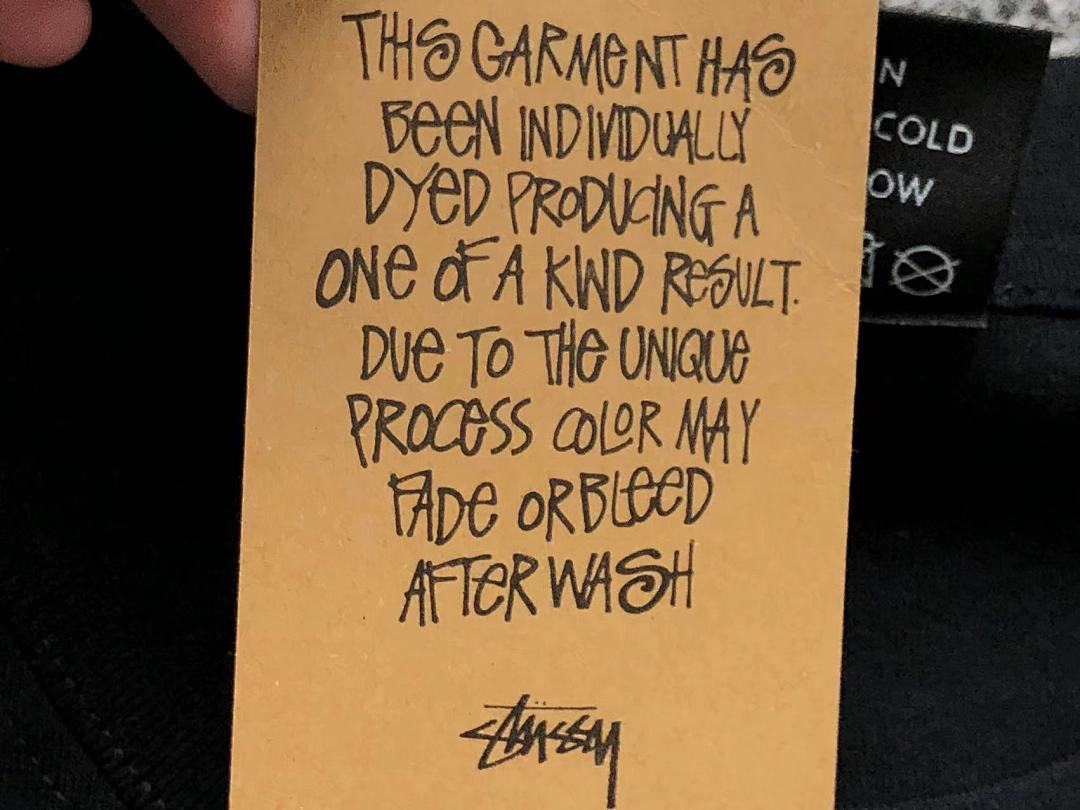 THIS GARMENT HAS
BEEN INDIVIDUALLY
DYED PRODUCING A
ONE OF A KIND RESULT.
DUE TO THE UNIQUE
PROCESS COLOR MAY
FADE OR BLEED
AFTER WASH
Stüssy
N
COLD
OW